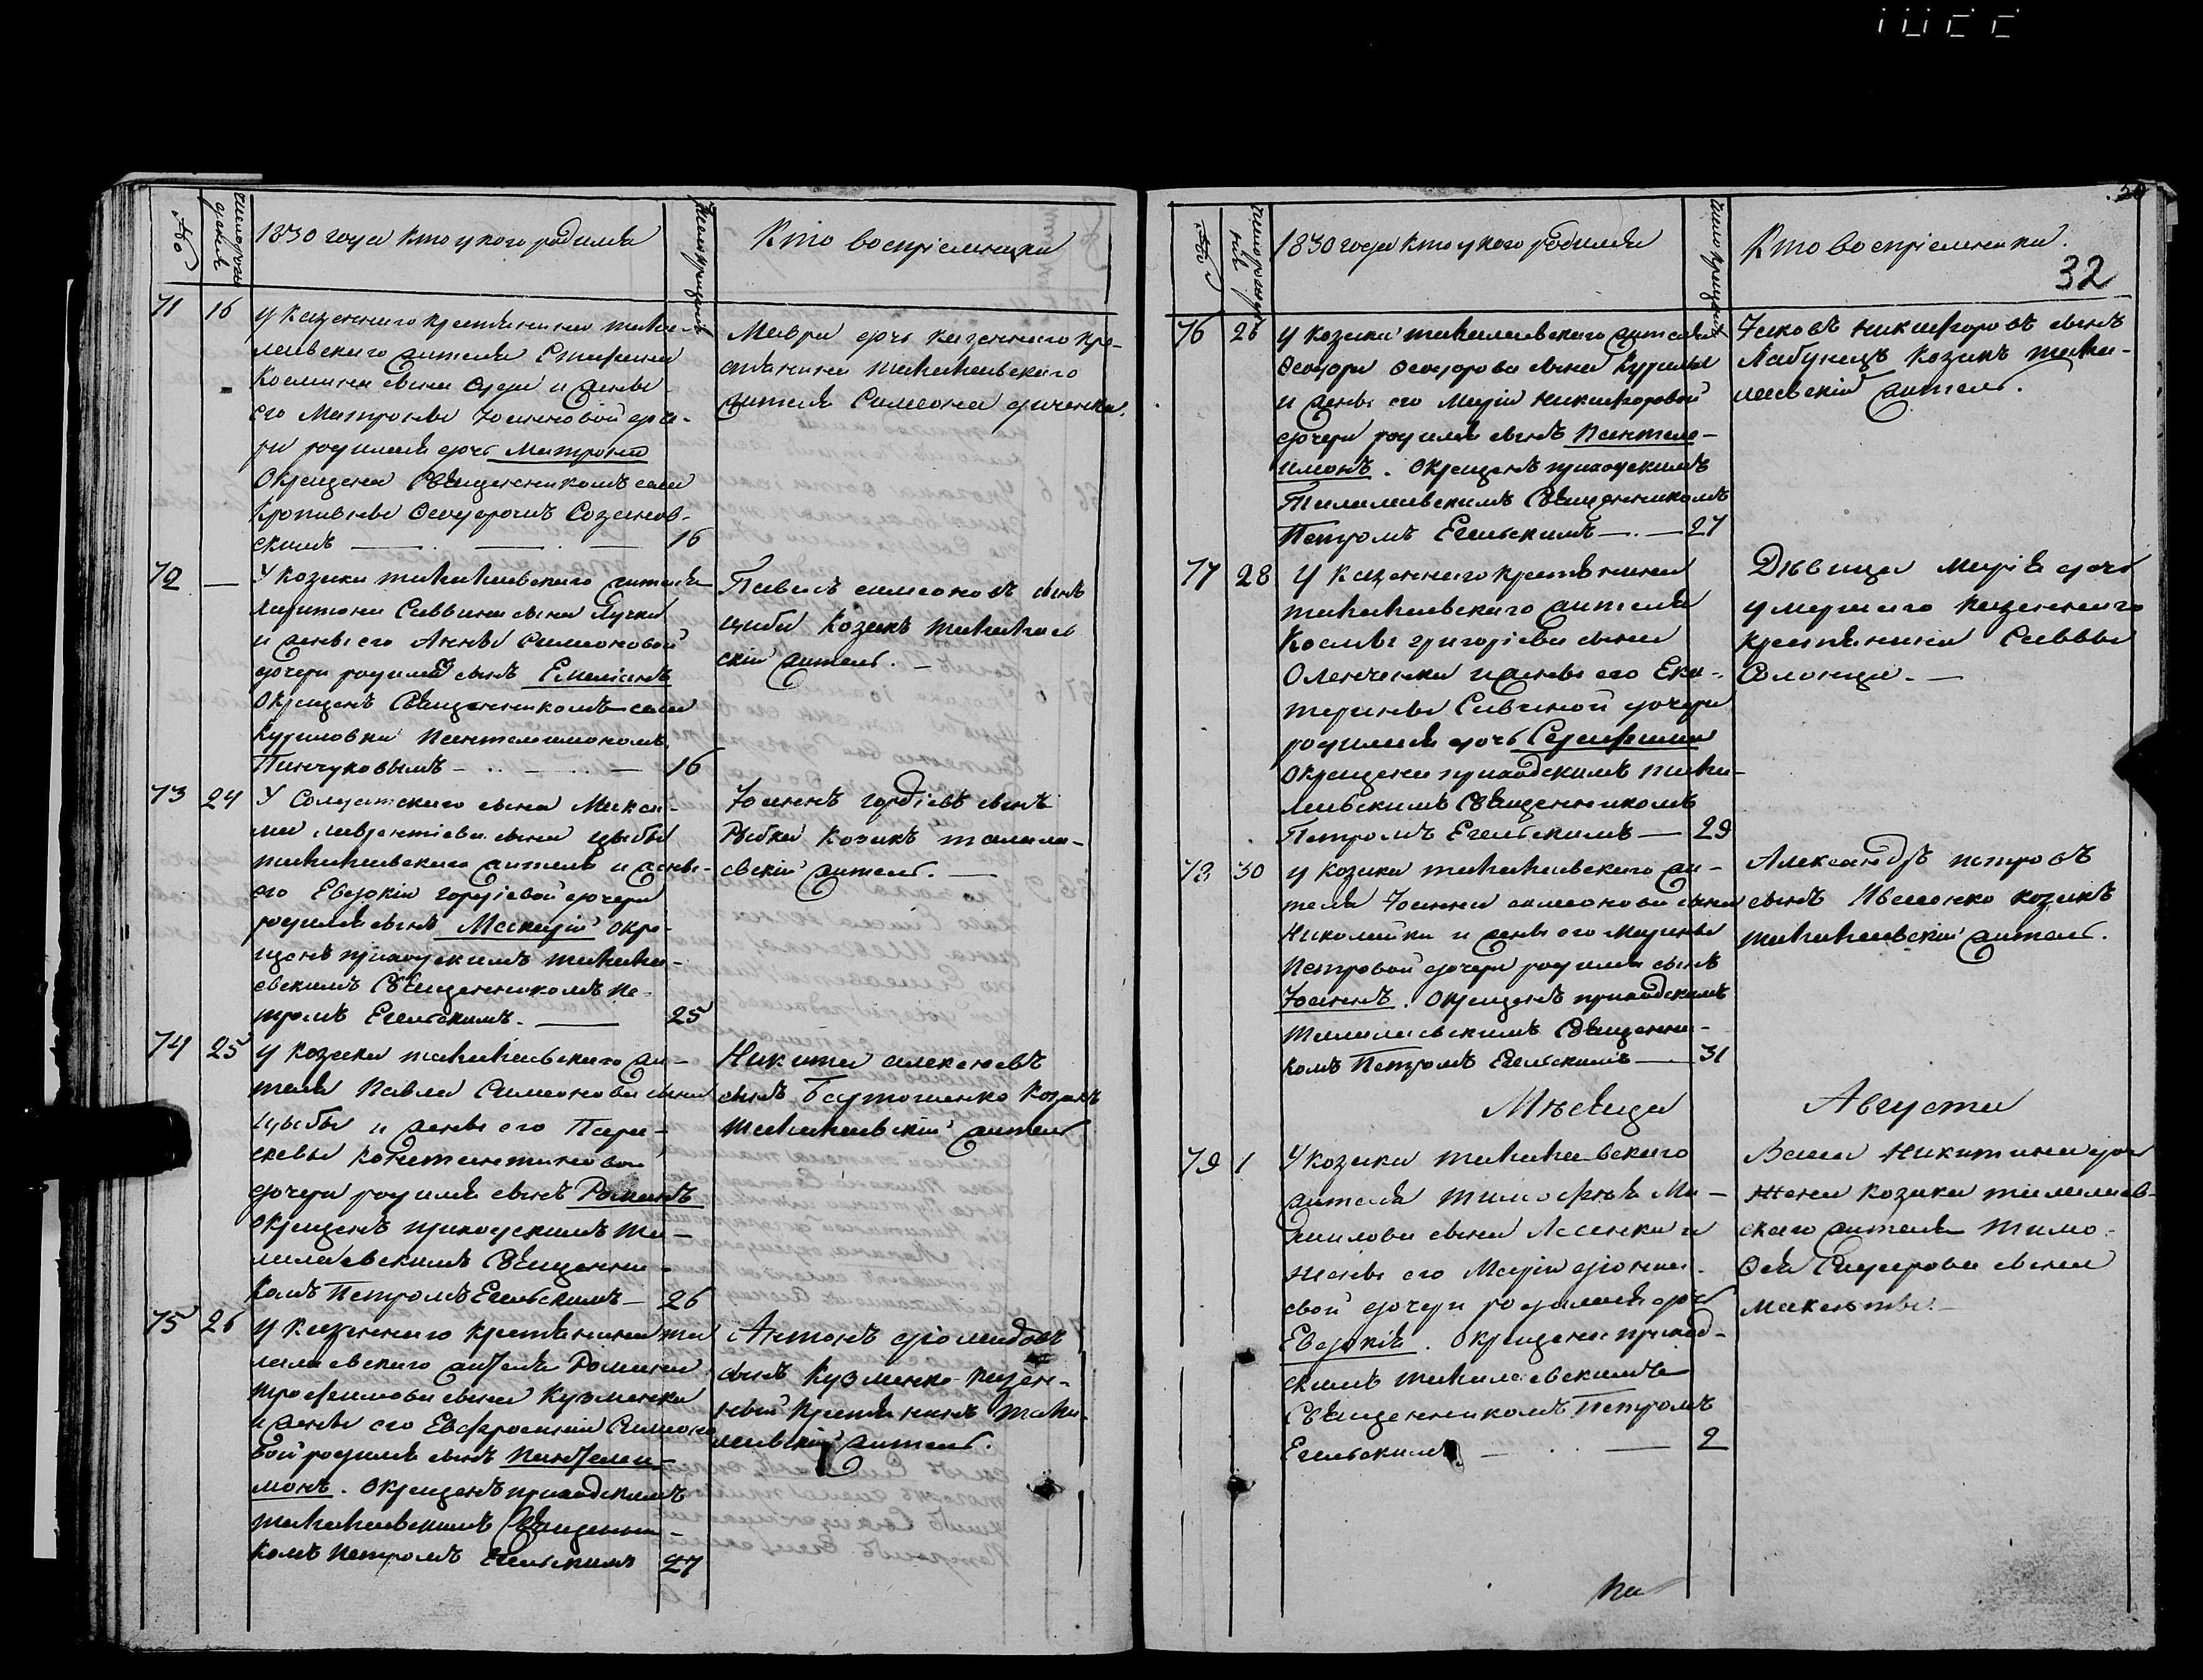 No
Число рожденій
1830 года кто у кого родился
Число крещенія
Кто воспріемники
71
16
у казеннаго крестьянина тала-
лаевского жителя Стефана
Космина сына Оуди и жены
его Матроны Іоанновой доче-
ри родилася дочь Матрона
Окрещена Священникомъ села
Кропивны Феодоромъ Созанов-
скимъ
16
Мавра дочь казенного кре-
стьянина талалаевского
жителя Симеона
72
У козака талалаевского жителя
Харитона Саввина сына Лучка
и жены его Анны Симеоновой
дочери родился сынъ Емеліанъ
Окрещенъ Священникомъ села
Куриловки Пантелеимономъ
Пинчуковымъ
16
Павелъ симеоновъ сынъ
цыба козакъ талалаев
скій житель.
73
24
У Солдатского сына Макси-
ма лаврентіева сына цыбы
талалаевского жителя и жены
его Евдокіи гордіевой дочери
родился сынъ Макарій окре-
щенъ приходскимъ талала-
евскимъ Священникомъ Пе-
тромъ Егельскимъ.
25
Іоаннъ гордіевъ сынъ
Рыбка козакъ талала-
евскій житель.
74
25
у козака талалаевского жи-
теля Павла Симеонова сына
цыбы и жены его Пара-
скевы константиновой
дочери родился сынъ Романъ
окрещенъ приходскимъ та-
лалаевскимъ Священни-
комъ Петромъ Егельскимъ
26
Никита алексеевъ
сынъ козакъ
талалаевскій житель
75
26
у казенного крестьянина та
лалаевского жителя Романа
трофимова сына Кузменка
и жены его Евфросиніи Симеоно
вой родился сынъ Пантелеи-
монъ. окрещенъ приходскимъ
талалаевскимъ Священни-
комъ Петромъ Егельскимъ
27
Антонъ діомидовъ
сынъ Кузменко казен-
ный крестьянинъ тала-
лаевскій житель.
1830 года кто у кого родился
Кто воспріемники.
32
76
26
у козака талалаевского жителя
Феодора Феодорова сына Курилы
и жены его Маріи никифоровой
дочери родился сынъ Пантеле-
имонъ. Окрещенъ приходскимъ
Талалаевскимъ Священникомъ
Петромъ Егельскимъ
27
Іаковъ никифоровъ сынъ
Лабунецъ козакъ тала-
лаевскій житель.
77
28
У казенного крестьянина
талалаевского жителя
Космы григоріева сына
Оленченка и жены его Ека-
терины Савиной дочери
родилася дочь Серафима
Окрещена приходскимъ тала-
лаевскимъ Священникомъ
Петромъ Егельскимъ
29
Дѣвица Марія дочь
умершего казенного
крестьянина Саввы
Солонца.
78
30
у козака талалаевского жи-
теля Іоанна симеонова сына
Николайка и жены его Марины
Петровой дочери родился сынъ
Іоаннъ. Окрещенъ приходскимъ
талалаевскимъ Священни-
комъ Петромъ Егельскимъ
31
Александръ петровъ
сынъ Ивашенко козакъ
талалаевскій житель.
Мѣсяца Августа
79
1
У козака талалаевского
жителя тимофея Ма-
нилова сына Ласенка и
жены его Маріи
вой дочери родилася дочь
Евдокія. Окрещена приход-
скимъ талалаевскимъ
Священникомъ Петромъ
Егельскимъ
2
Васса Никитина дочь
жена козака талалаев-
скаго жителя тимо-
Фея Сидорова сына
На